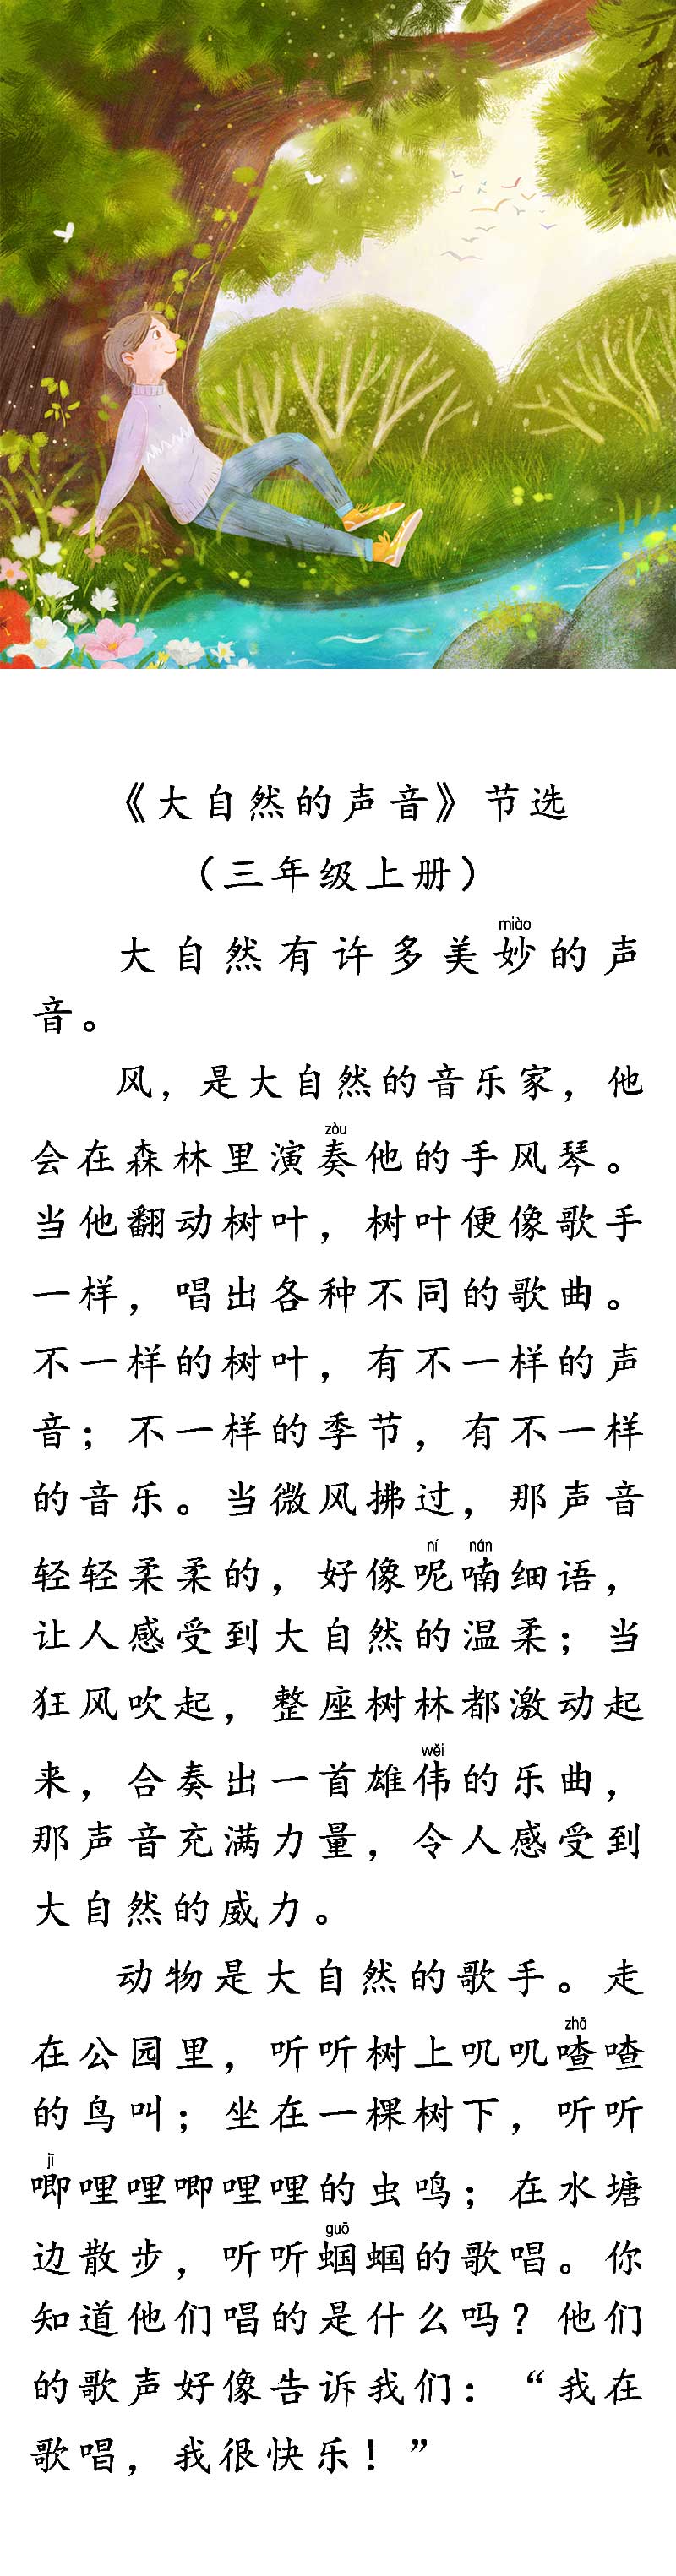 《大自然的声音》节选
（三年级上册）
miào
大自然有许多美妙的声
音。
风，是大自然的音乐家，他
zòu
会在森林里演奏他的手风琴。
当他翻动树叶，树叶便像歌手
一样，唱出各种不同的歌曲。
不一样的树叶，有不一样的声
音；不一样的季节，有不一样
的音乐。当微风拂过，那声音
ní nán
轻轻柔柔的，好像呢喃细语，
让人感受到大自然的温柔；当
狂风吹起，整座树林都激动起
wěi
来，合奏出一首雄伟的乐曲，
那声音充满力量，令人感受到
大自然的威力。
动物是大自然的歌手。走
zhā
在公园里，听听树上叽叽喳喳
的鸟叫；坐在一棵树下，听听
jī
唧哩哩唧哩哩的虫鸣；在水塘
guō
边散步，听听蝈蝈的歌唱。你
知道他们唱的是什么吗？他们
的歌声好像告诉我们：“我在
歌唱，我很快乐！”